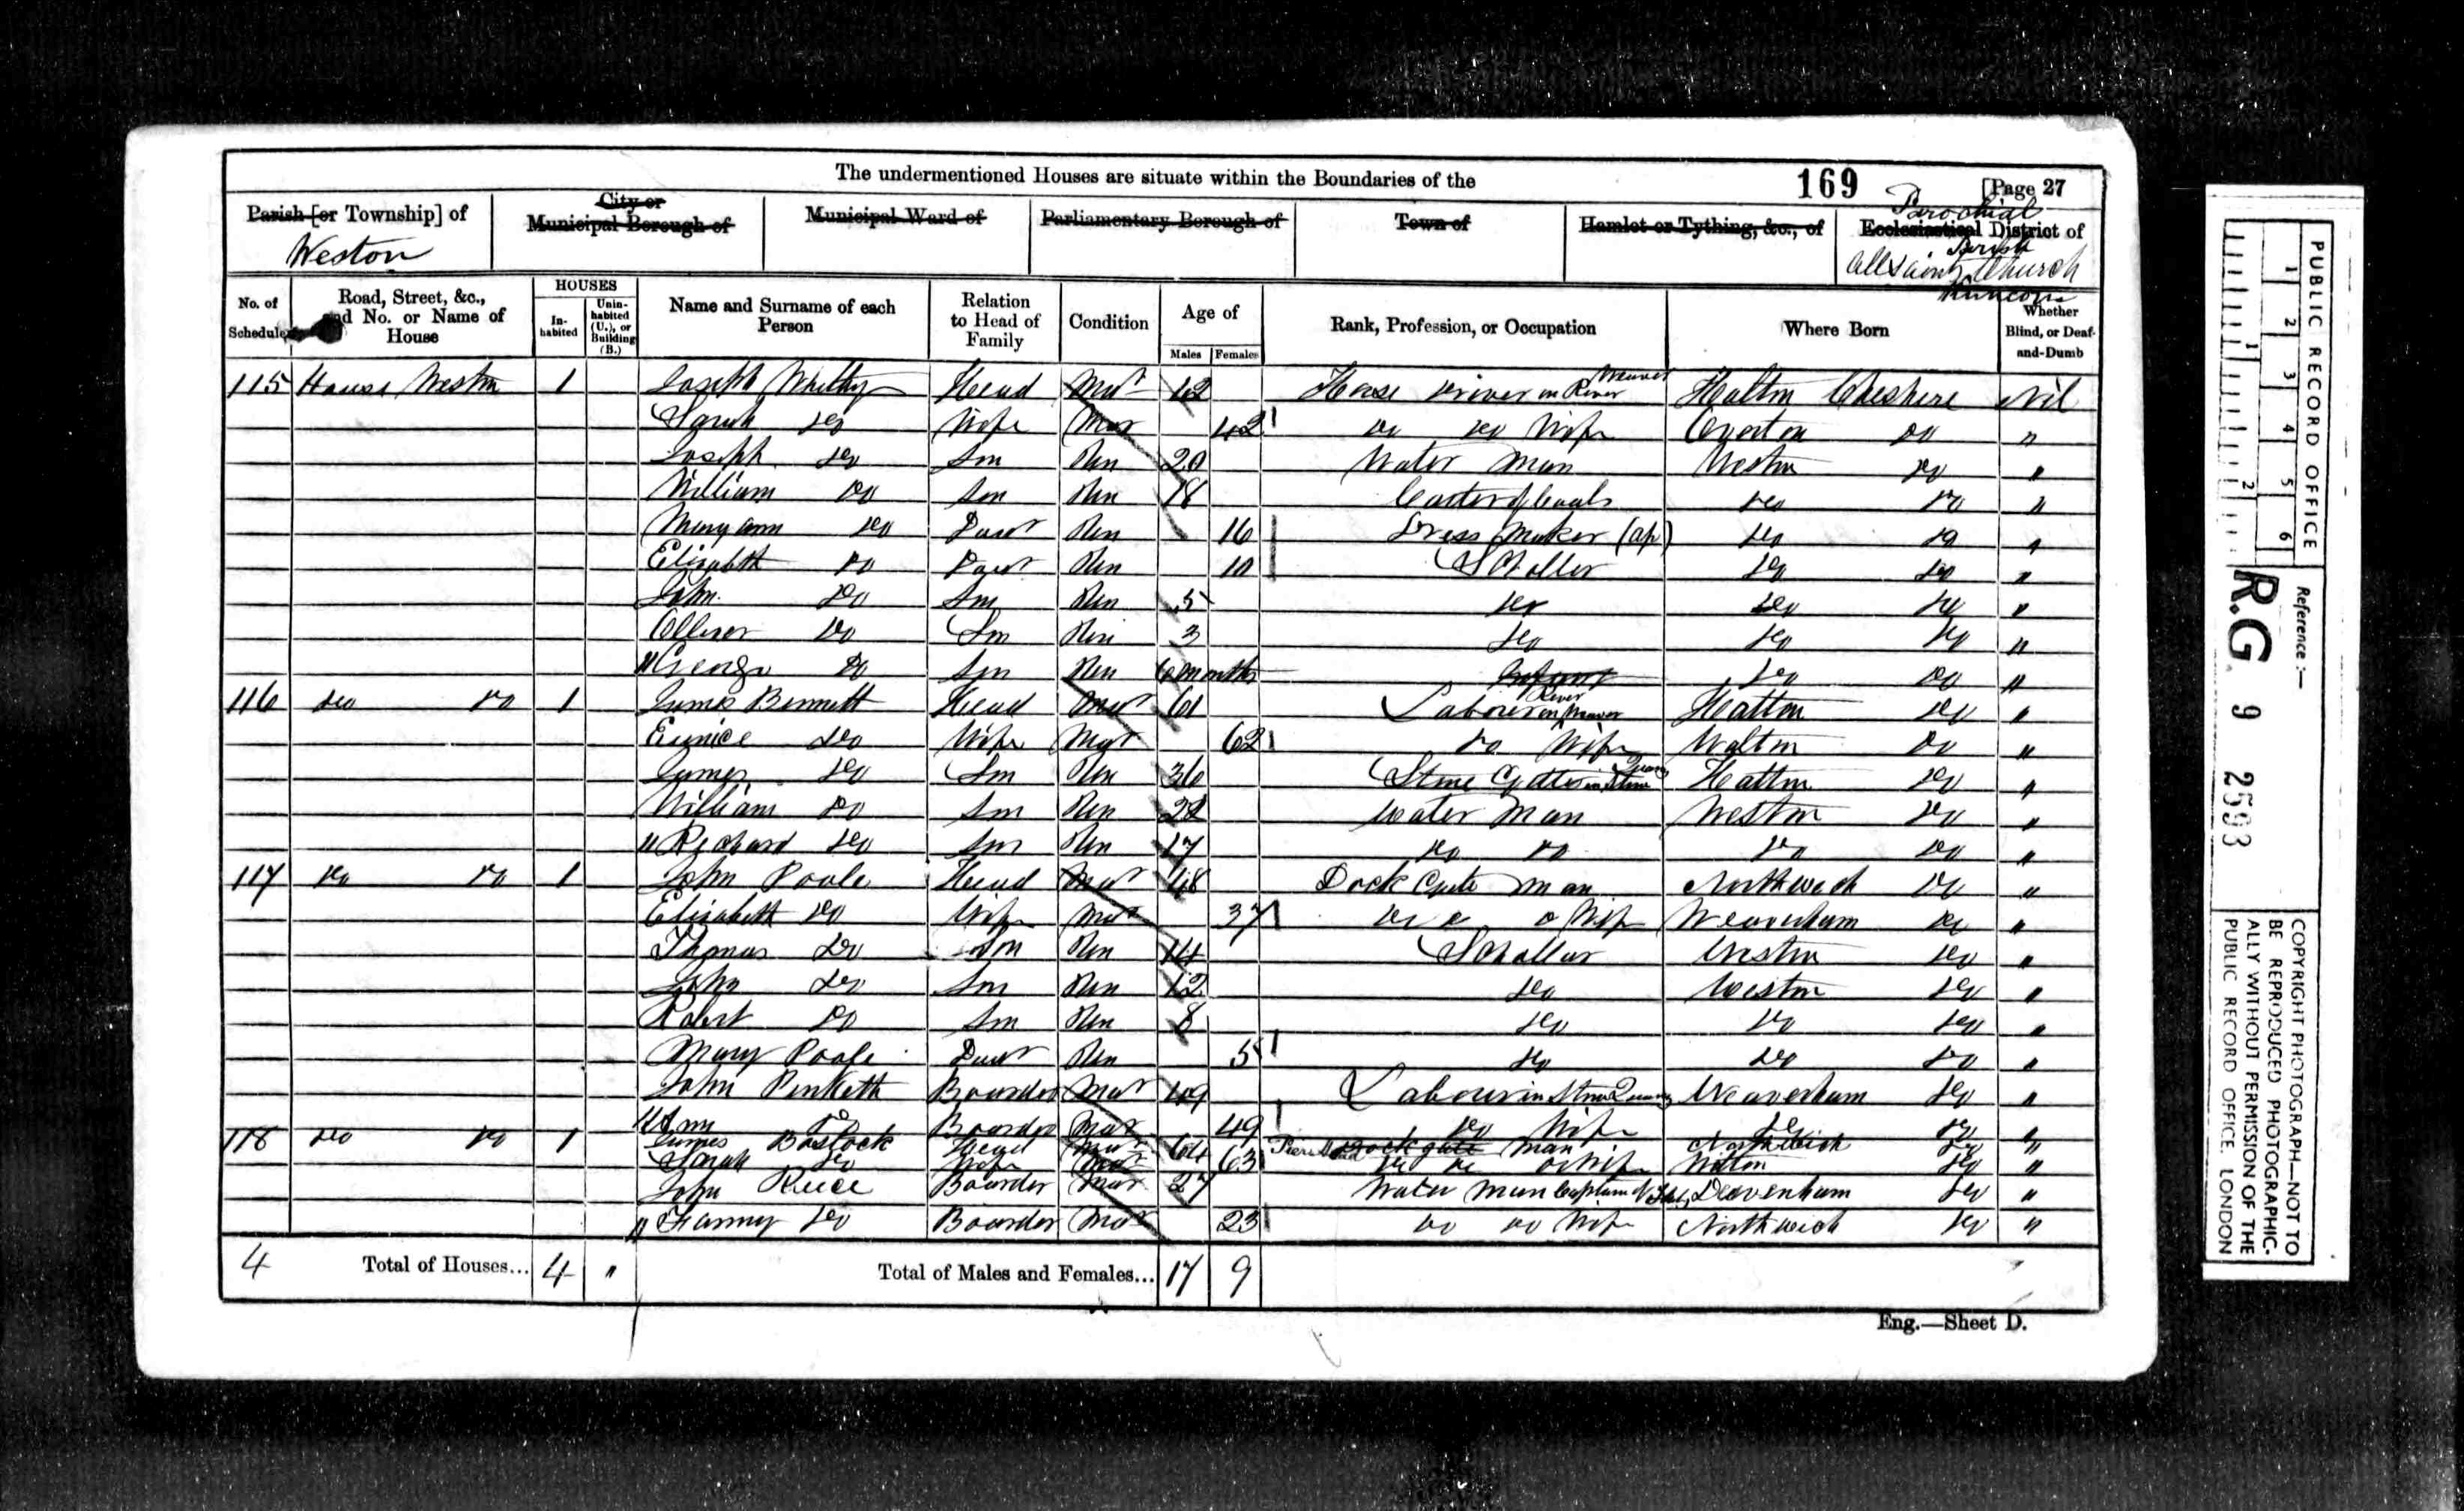 The undermentioned Houses are situate within the Boundaries of the
169
[Page 27
Parish [or Township] of
Weston
City or
Municipal Borough of
Municipal Ward of
Parliamentary Borough of
Town of
Hamlet or Tything, &c., of
Parochial
Ecclesiastical District of
Parish
All Saints Church
Runcorn
No. of Schedule
Road, Street, &c., and No. or Name of House
HOUSES
Inhabited
Uninhabited (U.), or Building (B.)
Name and Surname of each Person
Relation to Head of Family
Condition
Age of
Males
Females
Rank, Profession, or Occupation
Where Born
Whether Blind, or Deaf-and-Dumb
115 House Weston 1 Joseph Whitby Head Mar 42 Horse Driver on River Weaver Halton Cheshire Nil
Sarah Do Wife Mar 42 Do Do Wife Overton Do "
Joseph Do Son Un 20 Water Man Weston Do "
William Do Son Un 18 Carter of Coals Do Do "
Mary Ann Do Daur Un 16 Dress Maker (Ap) Do Do "
Elizabth Do Daur Un 10 Scholler Do Do "
John Do Son Un 5 Do Do Do "
Olliver Do Son Un 3 Do Do Do "
" George Do Son Un 6 months Infant Do Do "
116 Do Do 1 James Bennett Head Mar 61 Labour on River Weaver Hatton Do "
Eunice Do Wife Mar 62 Do Wife Walton Do "
James Do Son Un 36 Stone in Stone Hatton Do "
William Do Son Un 22 Water Man Weston Do "
" Richard Do Son Un 17 Do Do Do Do "
117 Do Do 1 John Poole Head Mar 48 Dock Gate Man Northwich Do "
Elizabeth Do Wife Mar 37 Do Do Wife Weaverham Do "
Thomas Do Son Un 14 Schollar Weston Do "
John Do Son Un 12 Do Weston Do "
Robert Do Son Un 8 Do Do Do "
Mary Poole Daur Un 5 Do Do Do "
John Penketh Boarder Mar 49 Labour in Stone Quarry Weaverham Do "
" Ann Do Boarder Mar 49 Do Wife Do Do "
118 Do Do 1 James Bostock Head Mar 64 Pier Head Dock gate man Northwich Do "
Sarah Do Wife Mar 63 Do Do Wife Do "
John Boarder Mar 27 Water Man Captain of Davenham Do "
" Fanny Do Boarder Mar 23 Do Do Wife Northwich Do "
4 Total of Houses... 4 " Total of Males and Females... 17 9
Eng.—Sheet D.
PUBLIC RECORD OFFICE
1 2 3 4 5 6
1 2
Reference :—
R.G. 9 2593
COPYRIGHT PHOTOGRAPH—NOT TO
BE REPRODUCED PHOTOGRAPHIC-
ALLY WITHOUT PERMISSION OF THE
PUBLIC RECORD OFFICE, LONDON